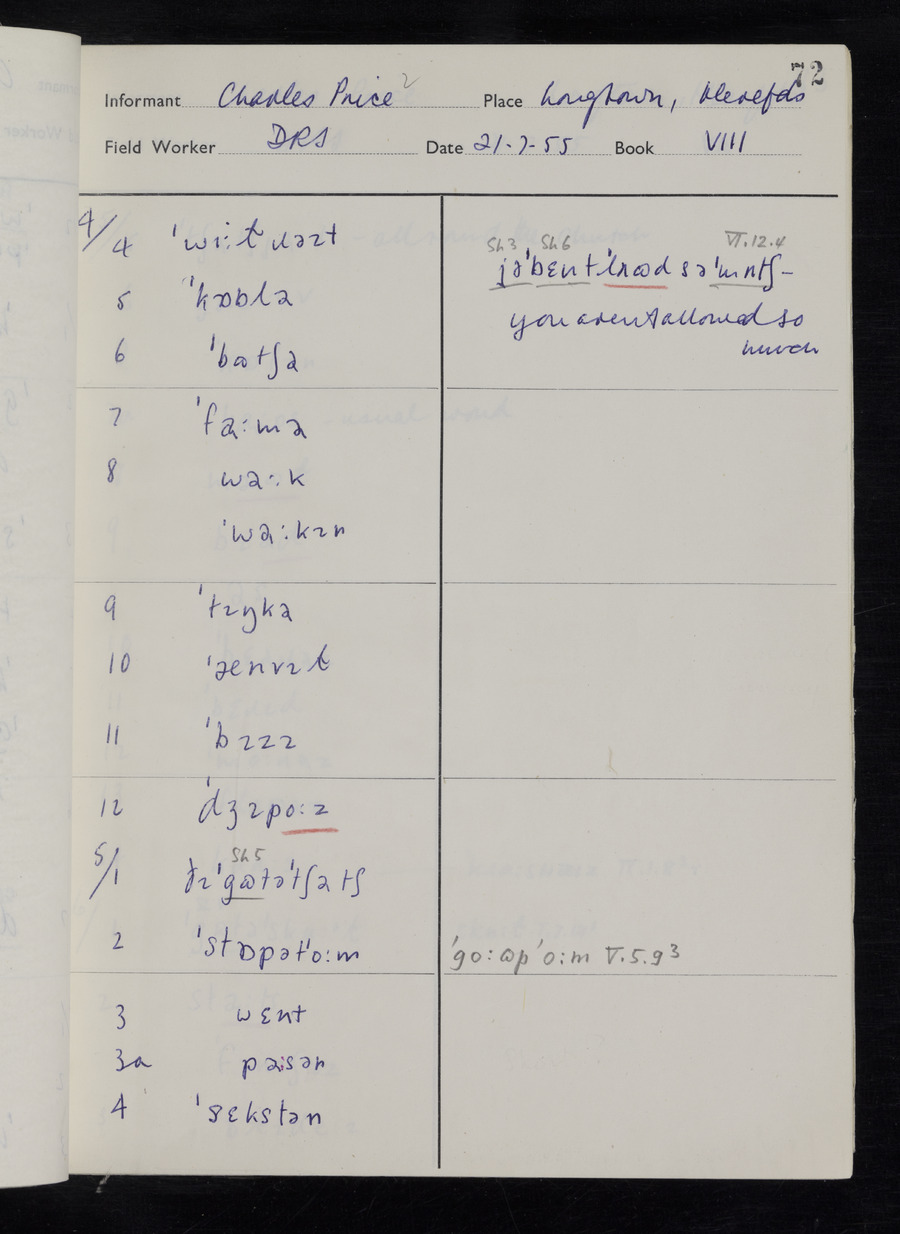 72
Informant Charles Price 2 Place Longtown, Herefds
Field Worker DRS Date 21-7-55 Book VIII
4/4 ˈwiːɫɹəɪt
5 ˈkɒblə
6 ˈbʊtʃə
7 ˈfaːmə
8 wəːk
ˈwəːkɪn
9 ˈtɪŋkə
10 ˈænvɪɫ
11 ˈbɪzɪ
12 ˈdʒɪpoːz
Sh 5
5/1 ðɪˈgɒtəˈtʃətʃ
2 ˈstɒpətˈoːm
3 wɛnt
3a paːsən
4 ˈsɛkstən
Sh3 Sh6 VI.12.4
jəˈbɛntˈlʌʊd səˈmʌtʃ –
you aren't allowed so
much
ˈgoːʊpˈoːm V.5.9³